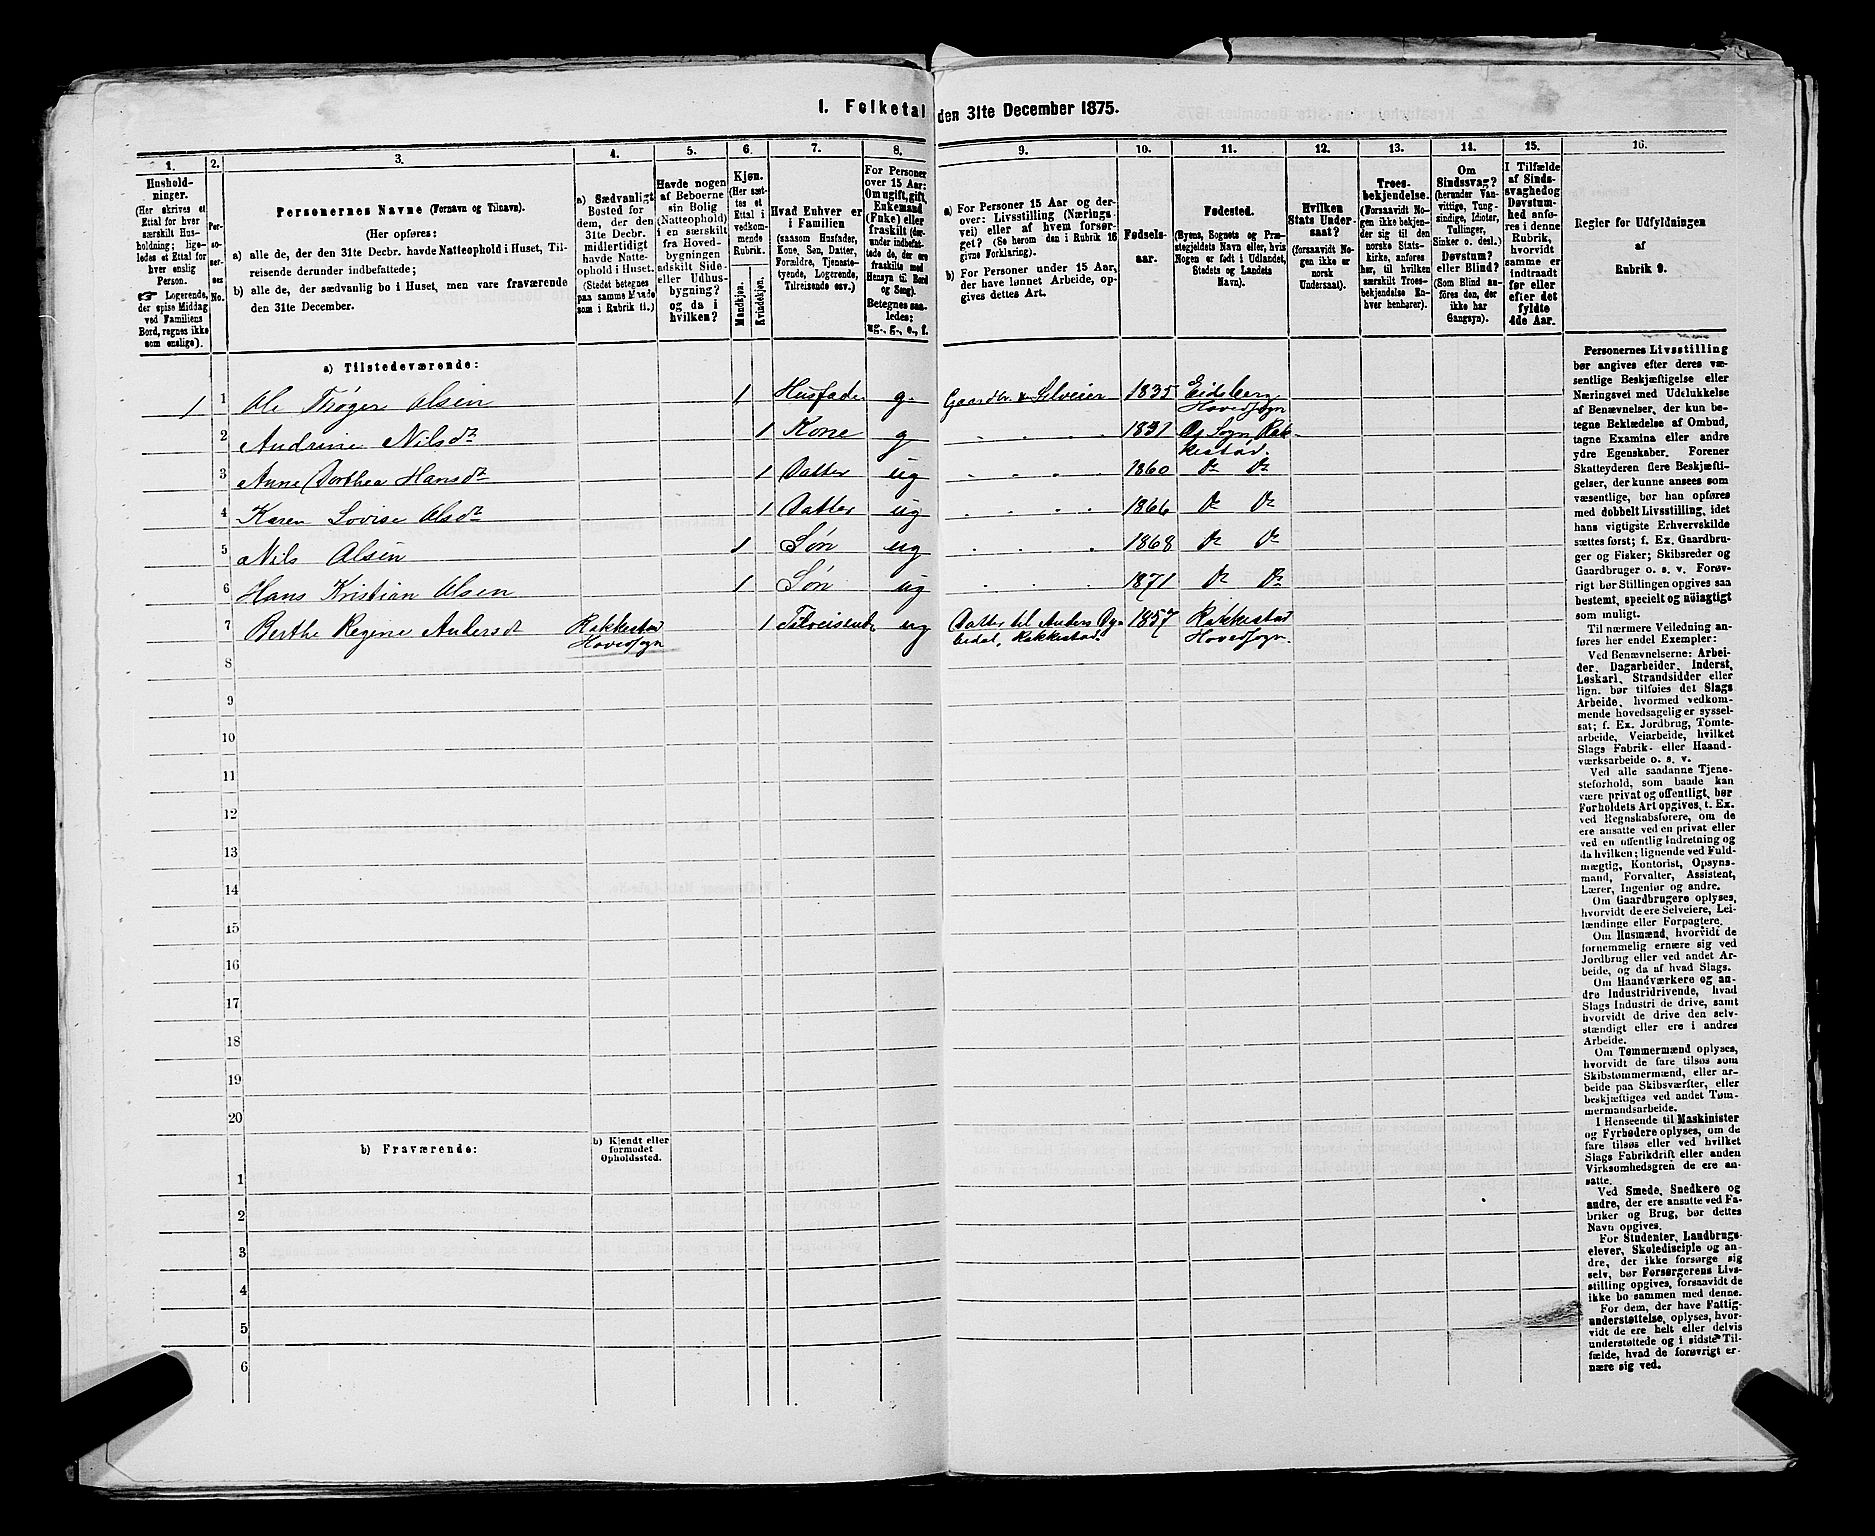 I. Folketal den 31te December 1875.
1. 2. 3. 4. 5. 6. 7. 8. 9. 10. 11. 12. 13. 14. 15. 16.
Hushold-
ninger.
(Her skrives et
Ettal for hver
særskilt Hus-
holdning; lige-
ledes et Ettal for
hver enslig
Person.
☞ Logerende,
der spise Middag
ved Familiens
Bord, regnes ikke
som enslige).
Per-
so-
ner-
nes
No.
Personernes Navne (Fornavn og Tilnavn).
(Her opføres:
a) alle de, der den 31te Decbr. havde Natteophold i Huset, Til-
reisende derunder indbefattede;
b) alle de, der sædvanlig bo i Huset, men vare fraværende
den 31te December.
a) Sædvanligt
Bosted for
dem, der den
31te Decbr.
midlertidigt
havde Natte-
ophold i Huset.
(Stedet betegnes
paa samme Maade
som i Rubrik 11.)
Havde nogen
af Beboerne
sin Bolig
(Natteophold)
i en særskilt
fra Hoved-
bygningen
adskilt Side-
eller Udhus-
bygning?
og da i
hvilken?
Kjøn.
(Her sæt-
tes et
Ettal i
vedkom-
mende
Rubrik.
Mandkjøn.
Kvindekjøn.
Hvad Enhver er
i Familien
(saasom Husfader,
Kone, Søn, Datter,
Forældre, Tjeneste-
tyende, Logerende,
Tilreisende osv.)
For Personer
over 15 Aar:
Om ugift, gift,
Enkemand
(Enke) eller
fraskilt (der-
under indbefat-
tede de, der ere
fraskilte med
Hensyn til Bord
og Seng).
Betegnes saa-
ledes:
ug., g., e., f.
a) For Personer 15 Aar og der-
over: Livsstilling (Nærings-
vei) eller af hvem forsør-
get? (Se herom den i Rubrik 16
givne Forklaring).
b) For Personer under 15 Aar,
der have lønnet Arbeide, op-
gives dettes Art.
Fødsels-
aar.
Fødested.
(Byens, Sognets og Præ-
stegjeldets Navn eller, hvis
Nogen er født i Udlandet,
Stedets og Landets
Navn).
Hvilken
Stats Under-
saat?
(forsaavidt No-
gen ikke er
norsk
Undersaat).
Troes-
bekjendelse.
(Forsaavidt No-
gen ikke bekjen-
der sig til den
norske Stats-
kirke, anføres
her, til hvilken
særskilt Troes-
bekjendelse En-
hver henhører).
Om
Sindssvag?
(herunder Van-
vittige, Tung-
sindige, Idioter,
Tullinger,
Sinker o. desl.)
Døvstum?
eller Blind?
(Som Blind an-
føres den, der
ikke har
Gangsyn).
I Tilfælde
af Sinds-
svaghed og
Døvstum-
hed anfø-
res i denne
Rubrik,
hvorvidt
samme er
indtraadt
før eller
efter det
fyldte
4de Aar.
Regler for Udfyldningen
af
Rubrik 9.
a) Tilstedeværende:
1 1 Ole Thøger Olsen 1 Husfader g. Gaardbr. & Selveier 1835 Eidsberg
Hovedsogn
2 Andrine Nilsdt 1 Kone g 1831 Os Sogn Rak-
kestad.
3 Anne Dorthea Hansdt 1 Datter ug 1860 Do Do
4 Karen Lovise Olsdt 1 Datter ug 1866 Do Do
5 Nils Olsen 1 Søn ug 1868 Do Do
6 Hans Kristian Olsen 1 Søn ug 1871 Do Do
7 Berthe Regine Andersdt Rakkestad 1 ug Datter til Anders 1857 Rakkestad
Hovedsogn Rakkestad. Hovedsogn.
8
9
10
11
12
13
14
15
16
17
18
19
20
b) Fraværende:
b) Kjendt eller
formodet
Opholdssted.
1
2
3
4
5
6
Personernes Livsstilling
bør angives efter deres væ-
sentlige Beskjæftigelse eller
Næringsvei med Udelukkelse
af Benævnelser, der kun be-
tegne Beklædelse af Ombud,
tagne Examina eller andre
ydre Egenskaber. Forener
Skatteyderen flere Beskjæfti-
gelser, der kunne ansees som
væsentlige, bør han opføres
med dobbelt Livsstilling, idet
hans vigtigste Erhvervskilde
sættes først; f. Ex. Gaardbru-
ger og Fisker; Skibsreder og
Gaardbruger o. s. v. Forøv-
rigt bør Stillingen opgives saa
bestemt, specielt og nøiagtigt
som muligt.
Til nærmere Veiledning an-
føres her endel Exempler:
Ved Benævnelserne: Arbei-
der, Dagarbeider, Inderst,
Løskarl, Strandsidder eller
lign. bør tilføies det Slags
Arbeide, hvormed vedkom-
mende hovedsagelig er syssel-
sat; f. Ex. Jordbrug, Tomte-
arbeide, Veiarbeide, hvilket
Slags Fabrik- eller Haand-
værksarbeide o. s. v.
Ved alle saadanne Tjene-
steforhold, som baade kan
være privat og offentligt, bør
Forholdets Art opgives, t. Ex.
ved Regnskabsførere, om de
ere ansatte ved en privat eller
ved en offentlig Indretning og
da hvilken; lignende ved Fuld-
mægtig, Kontorist, Opsyns-
mand, Forvalter, Assistent,
Lærer, Ingeniør og andre.
Om Gaardbrugere oplyses,
hvorvidt de ere Selveiere, Lei-
lændinge eller Forpagtere.
Om Husmænd, hvorvidt de
fornemmelig ernære sig ved
Jordbrug eller ved andet Ar-
beide, og da af hvad Slags.
Om Haandværkere og an-
dre Industridrivende, hvad
Slags Industri de drive, samt
hvorvidt de drive den selv-
stændigt eller ere i andres
Arbeide.
Om Tømmermænd oplyses,
hvorvidt de fare tilsøs som
Skibstømmermænd, eller ar-
beide paa Skibsværfter, eller
beskjæftiges ved andet Tøm-
mermandsarbeide.
I Henseende til Maskinister
og Fyrbødere oplyses, om de
fare tilsøs eller ved hvilket
Slags Fabrikdrift eller anden
Virksomhedsgren de ere an-
satte.
Ved Smede, Snedkere og
andre, der ere ansatte ved Fa-
briker og Brug, bør dettes
Navn opgives.
For Studenter, Landbrugs-
elever, Skoledisciple og an-
dre, der ikke forsørge sig
selv, bør Forsørgerens Livs-
stilling opgives, forsaavidt de
ikke bo sammen med denne.
For dem, der have Fattig-
understøttelse, oplyses, hvor-
vidt de ere helt eller delvis
understøttede og i sidste Til-
fælde, hvad de forøvrigt er-
nære sig ved.